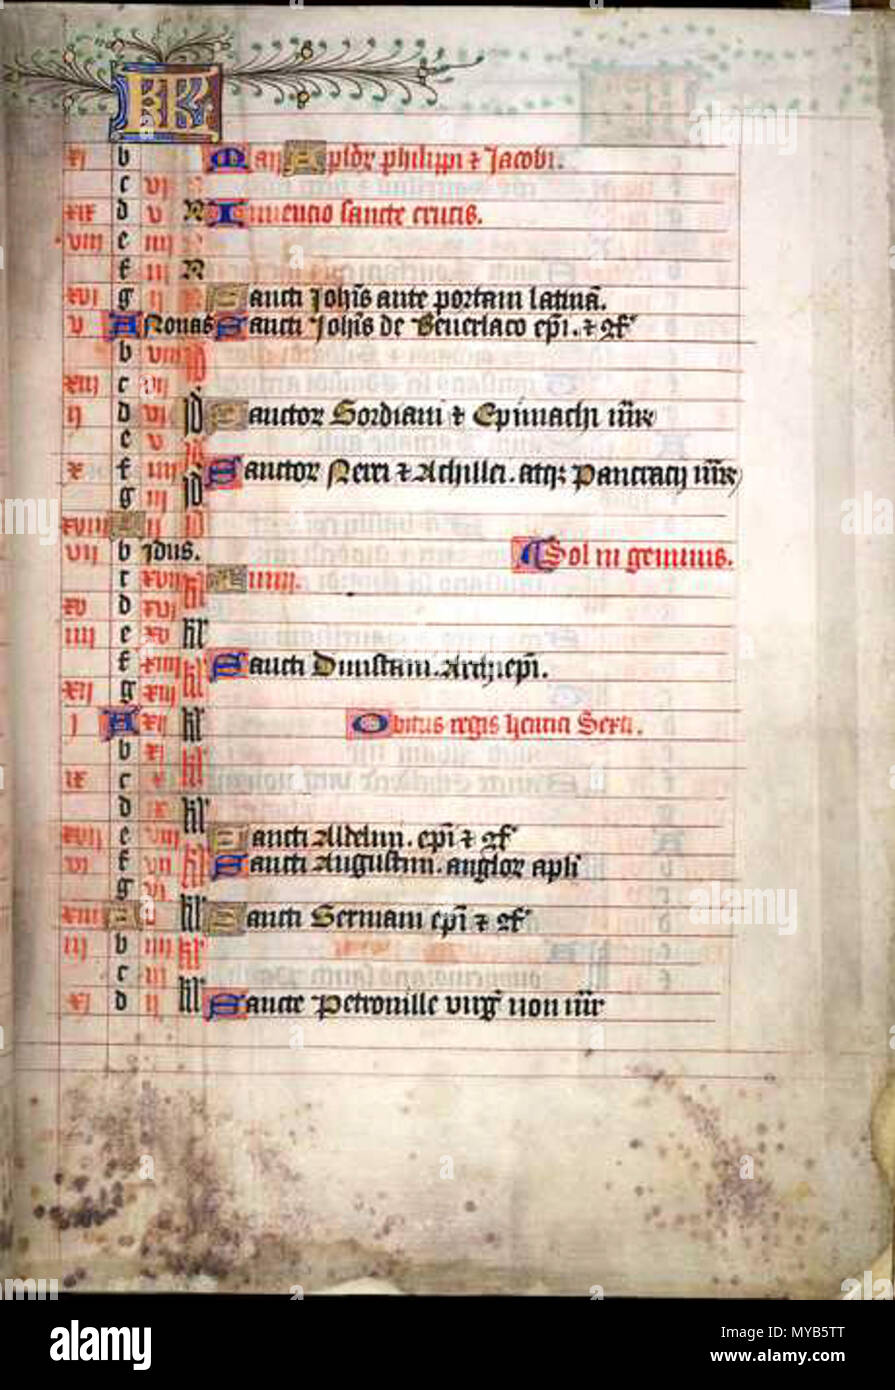 KL
xi b Maij Aplōr philippi ⁊ Jacobi.
c vi N
xix d v N Inuencio sancte crucis.
viii e iiii N
f iii N
xvi g ii N Sancti Johīs ante portam latinā.
v A Nonas Sancti Johīs de Beuerlaco epī. ⁊ 9f
b viii id
xiii c vii
ii d vi id Sanctor Gordiani ⁊ Epimachi mr̄
e v id
x f iiii Sanctor Nerei ⁊ Achillei. atqꝫ Pancracij mr̄
g iii id
xviii A ii id
vii b idus. Sol in geminis.
c xvii kl Iunij.
xv d xvi
iiii e xv kl
f xiiii kl Sancti Dunstani. Archiepī.
xii g xiii
i A xii kl Obitus regis henrici Sexti.
b xi kl
ix c x
d ix kl
xvii e viii Sancti Aldelmi. epī ⁊ 9f
vi f vii kl Sancti Augustini. anglor apli
g vi
xiiii A v kl Sancti Germani epī ⁊ 9f
iii b iiii kl
c iii
xi d ii kl Sancte Petronille virg̃ non mr̄
a
alamy
Image ID: MYB5TT
www.alamy.com